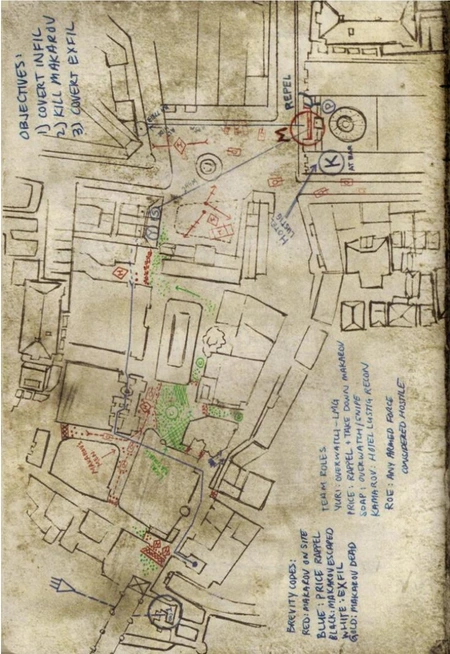 OBJECTIVES:
1) COVERT INFIL
2) KILL MAKAROV
3) COVERT EXFIL
REPEL
M
P
K
AT BAR
HOTEL
LUSTIG
Y
S
TEAM ROLES
YURI: OVERWATCH-LMG
PRICE: RAPPEL + TAKE DOWN MAKAROV
SOAP: OVERWATCH/SNIPE
KAMAROV: HOTEL LUSTIG RECON
ROE: ANY ARMED FORCE
CONSIDERED HOSTILE
BREVITY CODES:
RED: MAKAROV ON SITE
BLUE: PRICE RAPPEL
BLACK: MAKAROV ESCAPED
WHITE: EXFIL
GOLD: MAKAROV DEAD